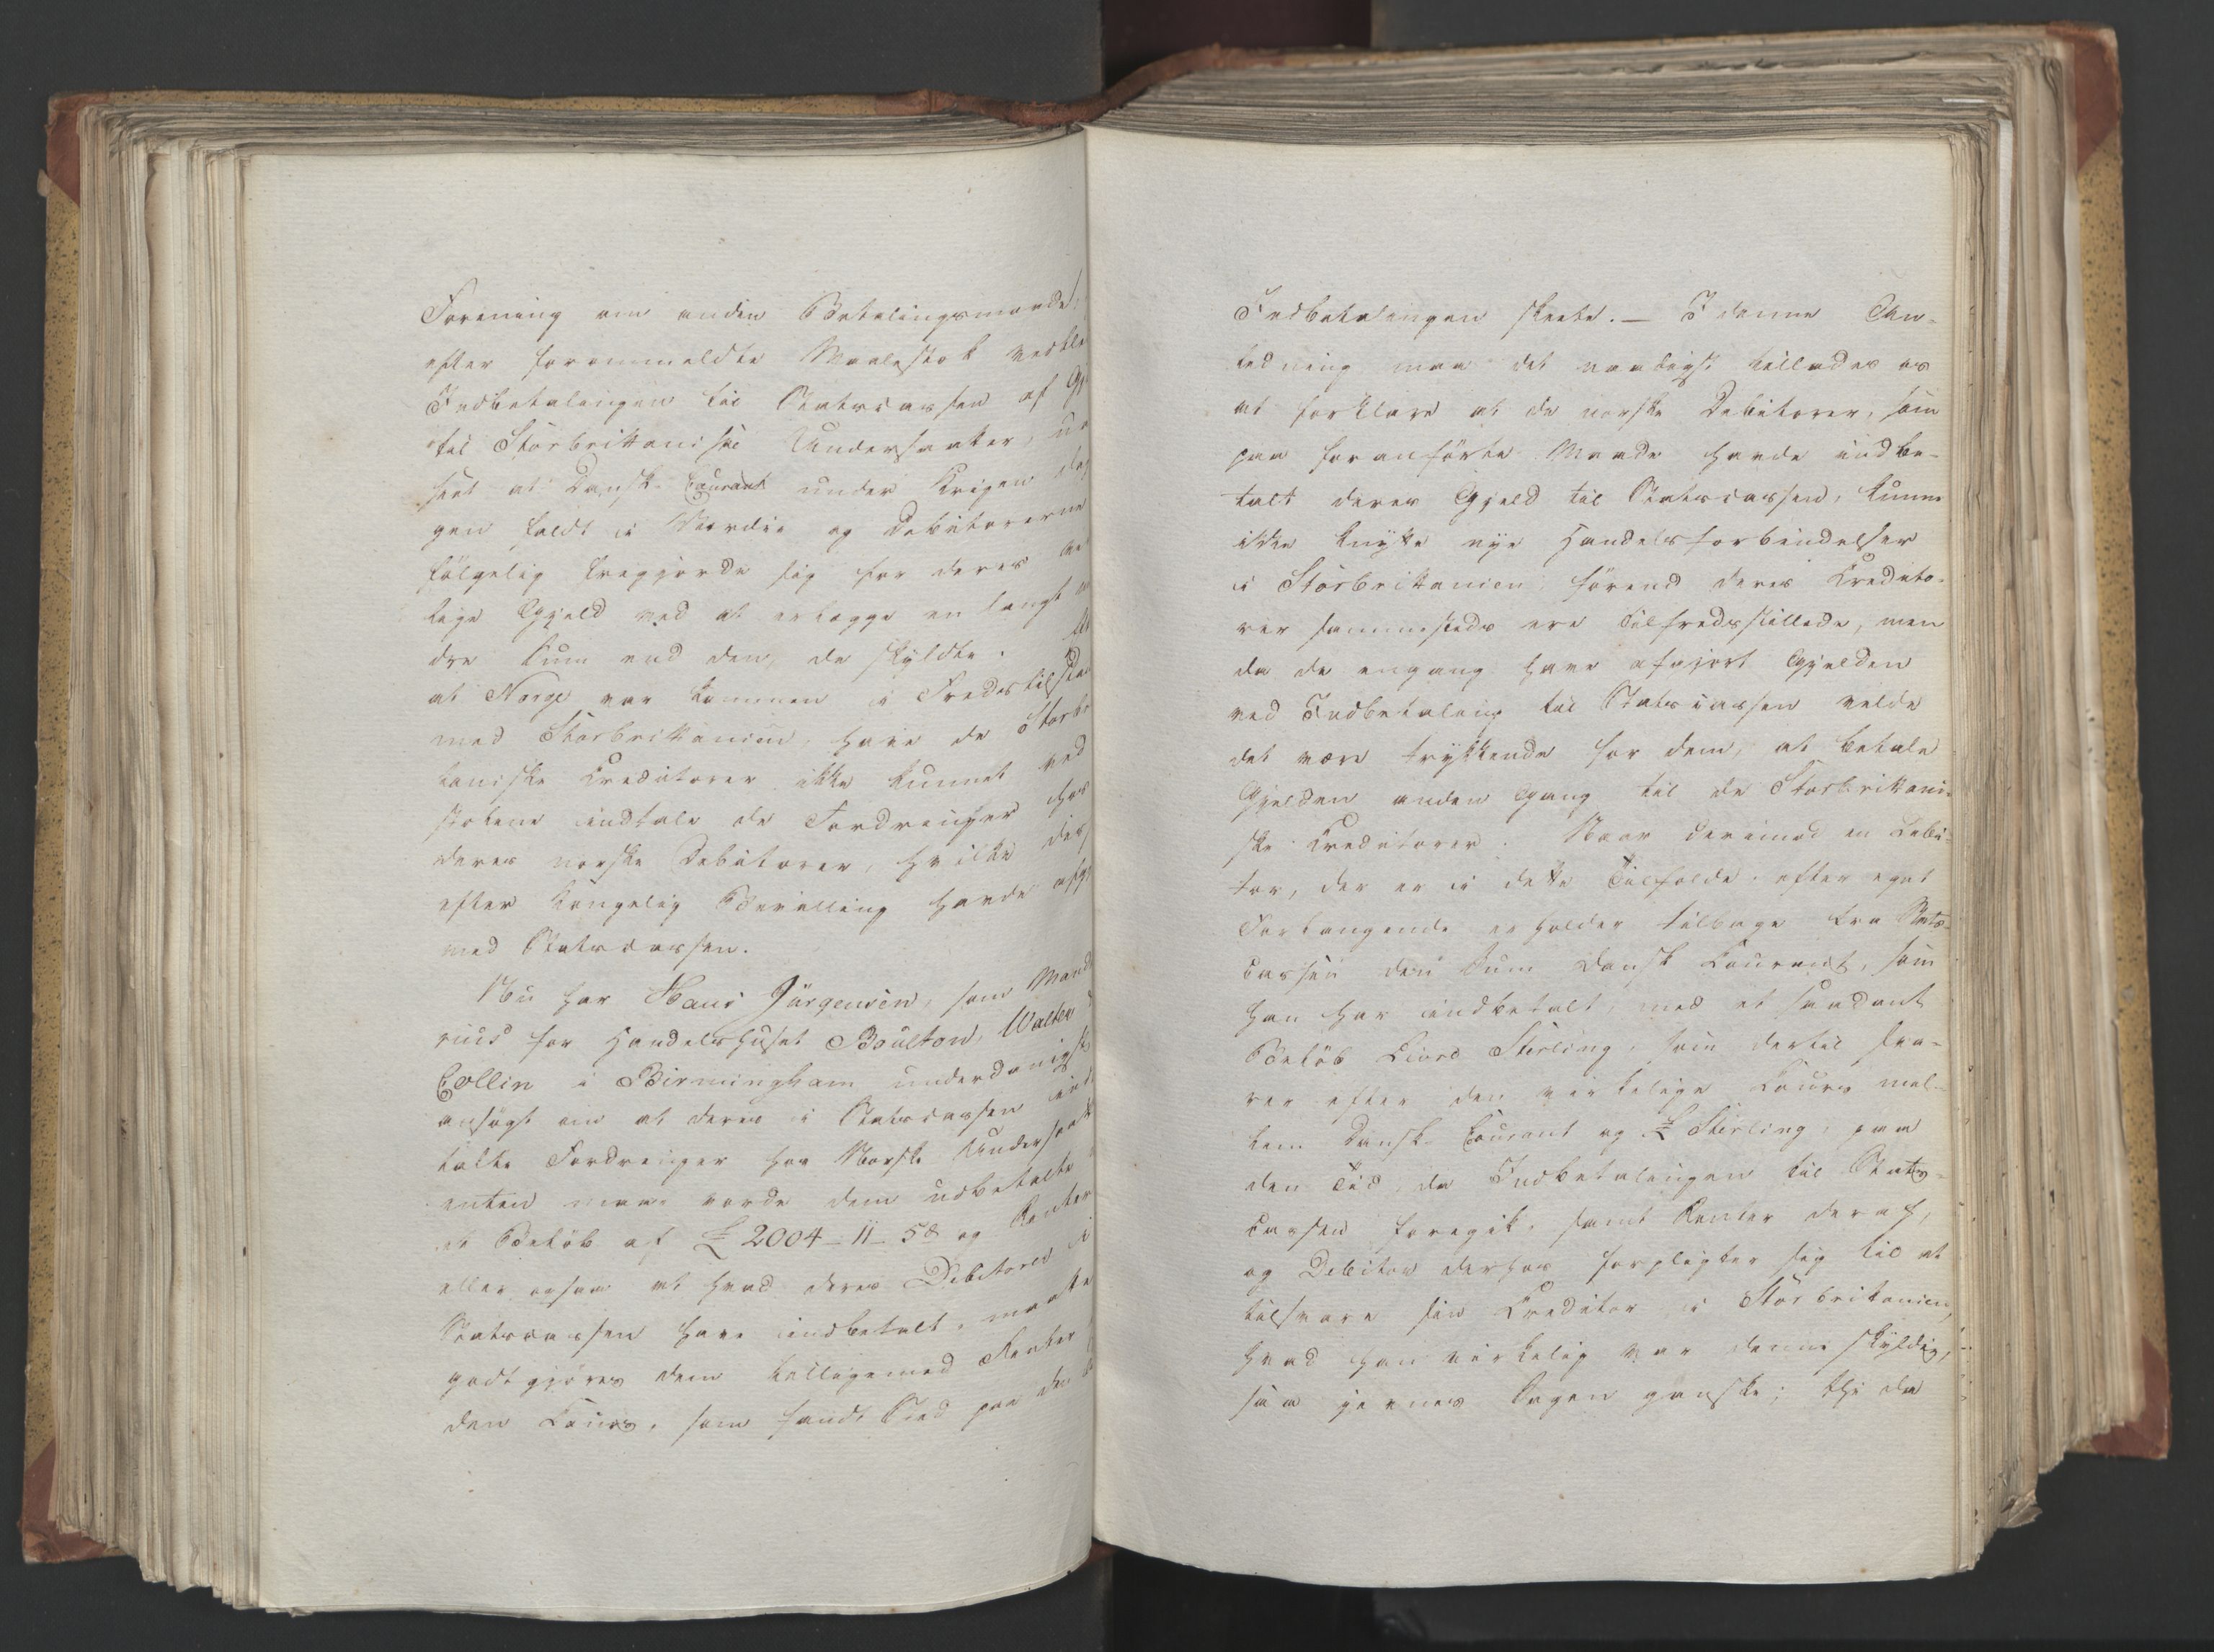 Forening om anden Betalingsmaade,
efter forommeldte Maalestok
Indbetalingen til Statscassen af
til Storbrittaniske Undersaatter,
seet at Dansk Courant under Krigen
gen faldt i Værdie og Debitorerne
følgelig frigjorde sig for deres
lige Gjeld ved at erlægge en langt
dre Sum end den, de skyldte.
at Norge var kommen i Fredstilstand
med Storbrittanien, have de Storbr
taniske Creditorer ikke kunnet ved
stolene indtale de Fordringer hos
deres norske Debitorer, hvilke
efter Kongelig Bevilling havde
med Statscassen.
Nu har Hans Jørgensen, som Manda
rius for Handelshuset Boulton, Walter
Collin i Birmingham underdanigst
ansøgt om at deres i Statscassen
talte Fordringer hos Norske Undersaatt
enten maa vorde dem udbetalte
et Beløb af £ 2004-11-58 og Renter
eller ogsaa at hvad deres Debitorer i
Statscassen have indbetalt, maatte
godtgjøres dem tilligemed Renter
den Cours, som fandt Sted paa den
Indbetalingen skeete. — I denne An-
ledning maa det naadigst tillades os
at forklare at de norske Debitorer, som
paa foranførte Maade havde indbe-
talt deres Gjeld til Statscassen, kunne
ikke knytte nye Handelsforbindelser
i Storbrittanien, førend deres Credito-
rer sammesteds ere tilfredsstillede, men
da de engang have afgjort Gjelden
ved Indbetaling til Statscassen vilde
det være trykkende for dem, at betale
Gjelden anden Gang til de Storbrittani-
ske Creditorer. Naar derimod en Debi-
tor, der er i dette Tilfælde, efter eget
Forlangende erholder tilbage fra Stats-
cassen den Sum Dansk Courant, som
han har indbetalt, med et saadant
Beløb Livre Sterling, som dertil sva-
rer efter den virkelige Cours mel-
lem Dansk Courant og £ Sterling, paa
den Tid, da Indbetalingen til Stats-
cassen foregik, samt Renter deraf,
og Debitor derhos forpligter sig til at
tilsvare sin Creditor i Storbritanien,
hvad han virkelig var denne skyldig,
saa jevnes Sagen ganske; thi da